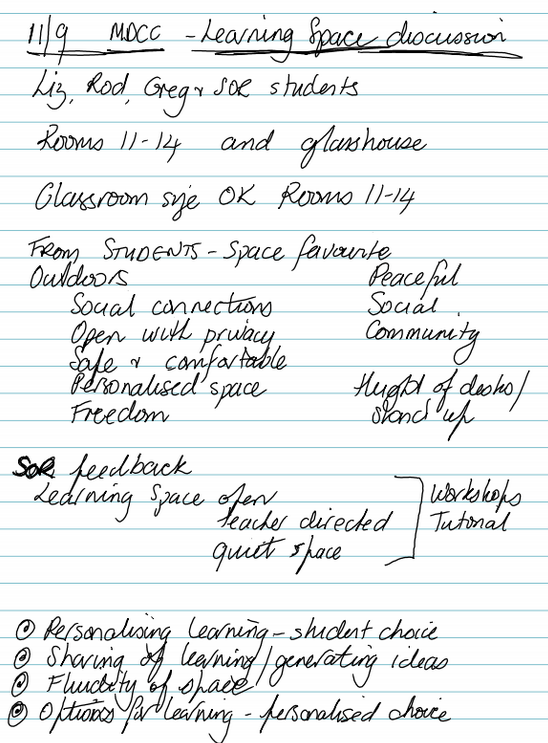 11/9 MDCC - Learning Space discussion
Liz, Rod, Greg & SOR students
Rooms 11-14 and glasshouse
Classroom size OK Rooms 11-14
FROM STUDENTS - Space favourite
Outdoors Peaceful
Social connections Social
Open with privacy Community
Safe & comfortable
Personalised space Height of desks/
Freedom stand up
SOR feedback
Learning Space open Workshops
teacher directed Tutorial
quiet space
Personalising learning - student choice
Sharing of learning/generating ideas
Fluidity of space
Options for learning - personalised choice